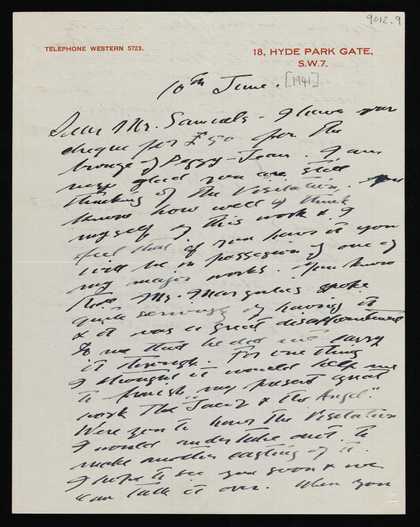 9012.9
TELEPHONE WESTERN 5723.
18, HYDE PARK GATE,
S.W.7.
10th June. [1941]
Dear Mr. Samuels - I have your
cheque for £50 for the
bronze of Peggy-Jean. I am
very glad you are still
thinking of the Visitation. You
know how well I think
myself of this work & I
feel that if you have it you
will be in possession of one of
my major works. You know
Mr. Margulies spoke
quite seriously of having it
& it was a great disappointment
to me that he did not carry
it through. For one thing
I thought it would help me
to finish my present great
work The "Jacob & the Angel"
Were you to have the Visitation
I would undertake not to
make another casting of it.
I hope to see you soon & we
can talk it over. When you